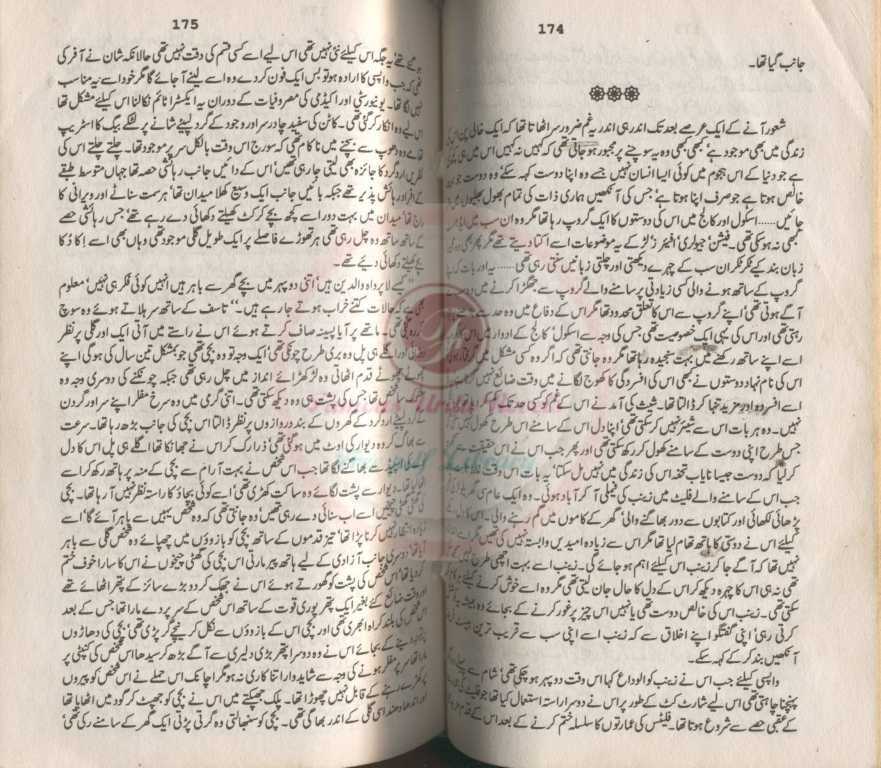 174
جانب گیا تھا۔
شعور آنے کے ایک عرصے بعد تک اندر ہی اندر یہ غم ضرور سر اٹھاتا تھا کہ ایک خالی پن اس کی
زندگی میں بھی موجود ہے، کبھی کبھی وہ یہ سوچنے پر مجبور ہو جاتی تھی کہ کہیں نہ کہیں اس میں ہی کمی
ہے جو دنیا کے اس ہجوم میں کوئی ایسا انسان نہیں جسے وہ اپنا دوست کہہ سکے، وہ دوست جو
خالص ہوتا ہے جو صرف اپنا ہوتا ہے، جس کی آنکھیں ہماری ذات کی تمام بھول بھلیوں
جائیں...... اسکول اور کالج میں اس کی دوستوں کا ایک گروپ رہا تھا مگر وہ ان سب میں
کبھی نہ ہو سکی تھی۔ فیشن، جیولری، افیئرز، لڑکے یہ موضوعات اسے اکتا دیتے تھے مگر پھر بھی وہ
زبان بند کیے ٹکر ٹکر ان سب کے چہرے دیکھتی اور چلتی زبانیں سنتی رہی تھی...... یہ اور بات کہ
گروپ کے ساتھ ہونے والی کسی زیادتی پر سامنے والے گروپ سے جھگڑا کرنے میں وہ
آگے ہوتی تھی، اپنے گروپ سے اس کا تعلق محدود تھا مگر اس کے دفاع میں وہ حد سے
رہتی تھی اور اس کی یہی ایک خصوصیت تھی جس کی وجہ سے اسکول، کالج کے ادوار میں
اسے اپنے ساتھ رکھنے میں بہت سنجیدہ رہا تھا مگر وہ جانتی تھی کہ اگر وہ کسی مشکل میں گرفتار ہو گی
اس کی نام نہاد دوستوں نے بھی اس کی افسردگی کا کھوج لگانے میں وقت ضائع نہیں کرنا
اسے افسردہ اور مزید تنہا کر ڈالا تھا۔ شیث کی آمد نے اس کے غم کو کسی حد تک
نہیں۔ وہ ہر بات اس سے شیئر نہیں کر سکتی تھی، اپنا دل اس کے سامنے اس طرح کھول نہیں
جس طرح اپنی دوست کے سامنے کھول کر رکھ سکتی تھی اور پھر جب اس نے اس حقیقت سے
کر لیا کہ دوست جیسا نایاب تحفہ اس کی زندگی میں نہیں مل سکتا، یہ بات اس وقت
جب اس کے سامنے والے فلیٹ میں زینب کی فیملی آ کر آباد ہوئی۔ وہ ایک عام سی
پڑھائی لکھائی اور کتابوں سے دور بھاگنے والی، گھر کے کاموں میں گم رہنے والی۔ اس
کیلئے اس نے دوستی کا ہاتھ تھام لیا تھا مگر اس سے زیادہ امیدیں وابستہ نہیں کی تھیں
نہیں تھا کہ آگے جا کر زینب اس کیلئے اہم ہو جائے گی۔ زینب اسے بہت اچھی طرح
تھی نہ ہی اس کا چہرہ دیکھ کر اس کے دل کا حال جان لیتی تھی مگر وہ اسے خوش کرنے کیلئے
سکتی تھی۔ زینب اس کی خالص دوست تھی یا نہیں اس چیز پر غور کرنے کے بجائے وہ ہمیشہ
کرتی رہی، اپنی گفتگو اپنے اخلاق سے کہ زینب اسے اپنی سب سے قریب ترین
آنکھیں بند کر کے کہہ سکے۔
واپسی کیلئے جب اس نے زینب کو الوداع کہا اس وقت دوپہر ہو چکی تھی، شام سے پہلے
پہنچنا چاہتی تھی اسی لیے شارٹ کٹ کے طور پر اس نے دوسرا راستہ استعمال کیا تھا جو فلیٹ
کے عقبی حصے سے شروع ہوتا تھا۔ فلیٹس کی عمارتوں کا سلسلہ ختم کرنے کے بعد اس کے قدم
175
یہ جگہ اس کیلئے نئی نہیں تھی اس لیے اسے کسی قسم کی دقت نہیں تھی حالانکہ شان نے آفر کی
تھی کہ جب واپسی کا ارادہ ہو تو بس ایک فون کر دے وہ اسے لینے آ جائے گا مگر خود اسے یہ مناسب
نہیں لگا تھا۔ یونیورسٹی اور اکیڈمی کی مصروفیات کے دوران یہ ایکسٹرا ٹائم نکالنا اس کیلئے مشکل تھا
اس لیے وہ انکار کر گئی تھی۔ کاٹن کی سفید چادر سر اور وجود کے گرد لپیٹے شانے پر لٹکے بیگ کا اسٹریپ
وہ دھوپ سے بچنے میں ناکام تھی کہ سورج اس وقت بالکل سر پر موجود تھا۔ چلتے چلتے اس کی
نظریں ارد گرد کا جائزہ بھی لیتی جا رہی تھیں، اس کے دائیں جانب رہائشی حصہ تھا جہاں متوسط طبقے
کے افراد رہائش پذیر تھے جبکہ بائیں جانب ایک وسیع کھلا میدان تھا، ہر سمت سناٹے اور ویرانی کا
راج تھا، میدان میں بہت دور اسے کچھ بچے کرکٹ کھیلتے دکھائی دے رہے تھے، جس رہائشی حصے
کے ساتھ ساتھ وہ چل رہی تھی ہر تھوڑے فاصلے پر ایک طویل گلی موجود تھی وہاں بھی اسے اکا دکا
بچے کھیلتے دکھائی دیے تھے۔
"کیسے لاپرواہ والدین ہیں، اتنی دوپہر میں بچے گھر سے باہر ہیں انہیں کوئی فکر ہی نہیں، معلوم
بھی ہے کہ حالات کتنے خراب ہوتے جا رہے ہیں۔" تاسف کے ساتھ سر ہلاتے ہوئے وہ سوچ
رہی تھی۔ ماتھے پر آیا پسینہ صاف کرتے ہوئے اس نے راستے میں آتی ایک اور گلی پر نظر
ڈالی اور اگلے ہی پل وہ بری طرح چونکی تھی، ایک وجہ تو وہ بچی تھی جو بمشکل تین سال کی ہو گی اپنے
چھوٹے چھوٹے قدم اٹھاتی وہ لڑکھڑائے انداز میں چل رہی تھی جبکہ چونکنے کی دوسری وجہ وہ
شخص تھا جس کی پشت ہی وہ دیکھ سکتی تھی۔ اتنی گرمی میں وہ سرخ مفلر اپنے سر اور گردن
لپیٹے ارد گرد کے گھروں کے بند دروازوں پر نظر ڈالتا اس بچی کی جانب بڑھ رہا تھا۔ سرعت
سے بھاگ کر وہ دیوار کی اوٹ میں ہو گئی تھی، ذرا رک کر اس نے جھانکا تھا، اگلے ہی پل اس کا دل
اسپیڈ سے بھاگنے لگا تھا جب اس شخص نے بہت آرام سے بچی کے منہ پر ہاتھ رکھ کر اسے
اٹھا لیا تھا۔ دیوار سے پشت لگائے وہ ساکت کھڑی تھی، اسے کوئی بچاؤ کا راستہ نظر نہیں آ رہا تھا۔ بچی
کی گھٹی گھٹی چیخیں اسے اب سنائی دے رہی تھیں، وہ جانتی تھی کہ وہ شخص یہیں سے باہر آئے گا، اسے
زیادہ انتظار نہیں کرنا پڑا تھا، تیز قدموں کے ساتھ بچی کو بازوؤں میں چھپائے وہ شخص گلی سے باہر
آیا تھا، دوسری جانب آزادی کے لیے ہاتھ پیر مارتی اس بچی کی گھٹی چیخوں نے اس کا سارا خوف ختم
کر دیا تھا، اس شخص کی پشت کو گھورتے ہوئے اس نے جھک کر دو بڑے سائز کے پتھر اٹھائے تھے
اور وقت ضائع کیے بغیر ایک پتھر پوری قوت کے ساتھ اس شخص کے سر پر دے مارا تھا جس کے بعد
اس شخص کی بلند کراہ ابھری تھی اور بچی اس کے بازوؤں سے نکل کر نیچے گر پڑی تھی، بچی کی دھاڑوں
پر توجہ دینے کے بجائے اس نے وہ دوسرا پتھر بڑی دلیری سے آگے بڑھ کر سیدھا اس شخص کی کنپٹی پر
مارا تھا، سر پر مفلر ہونے کی وجہ سے شاید وار اتنا کاری نہ ہو مگر اچانک اس حملے نے اس شخص کو پیروں
پر کھڑے رہنے کے قابل نہیں چھوڑا تھا۔ پلک جھپکتے میں اس نے بچی کو جھپٹ کر گود میں اٹھایا تھا
اور اندھا دھند اسی گلی کے اندر بھاگی تھی۔ بچی کو سنبھالتی وہ گرتی پڑتی ایک گھر کے سامنے رکی تھی،